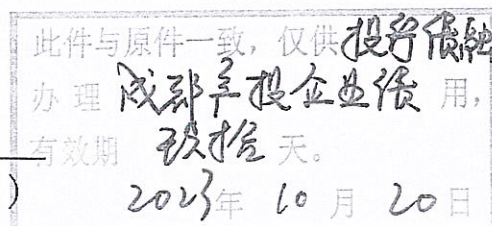 此件与原件一致，仅供投行债融
办理 成都产投企业债 用，
有效期 玖拾 天。
） 2023年 10 月 20 日